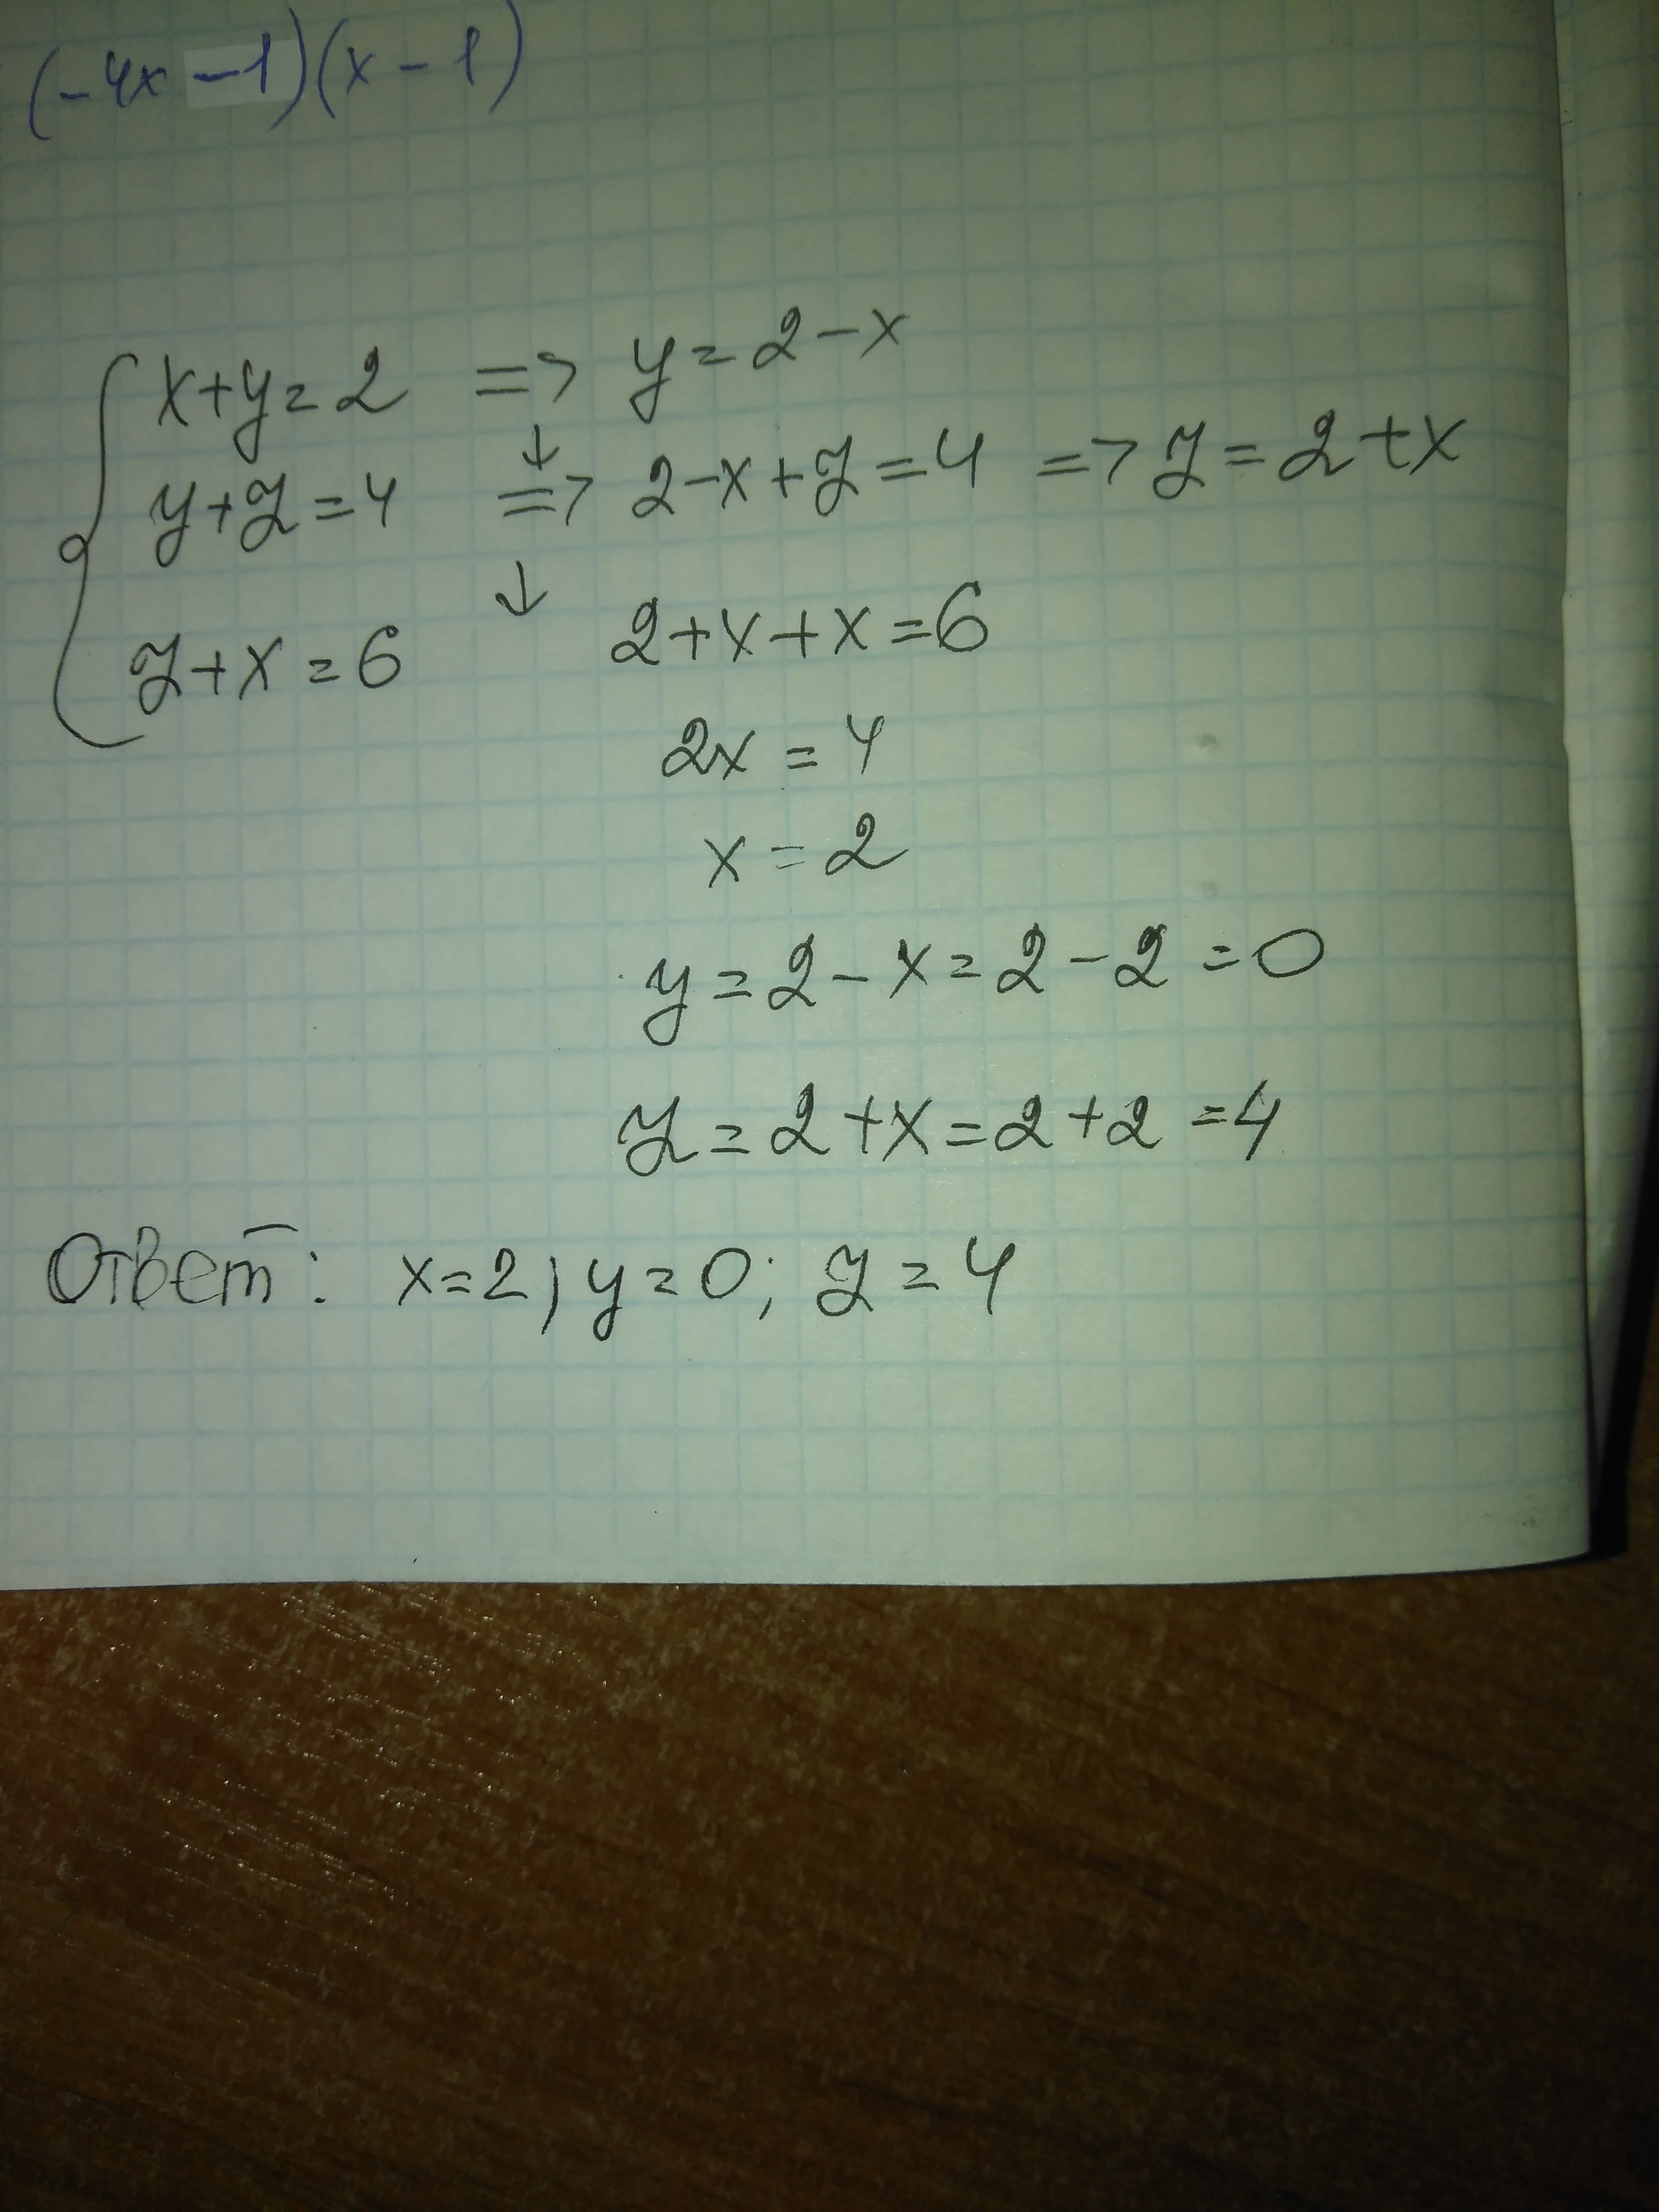 (-4x-1)(x-1)
x+y=2 => y=2-x
↓
y+z=4 => 2-x+z=4 => z=2+x
↓
z+x=6 2+x+x=6
2x=4
x=2
y=2-x=2-2=0
z=2+x=2+2=4
Ответ: x=2; y=0; z=4